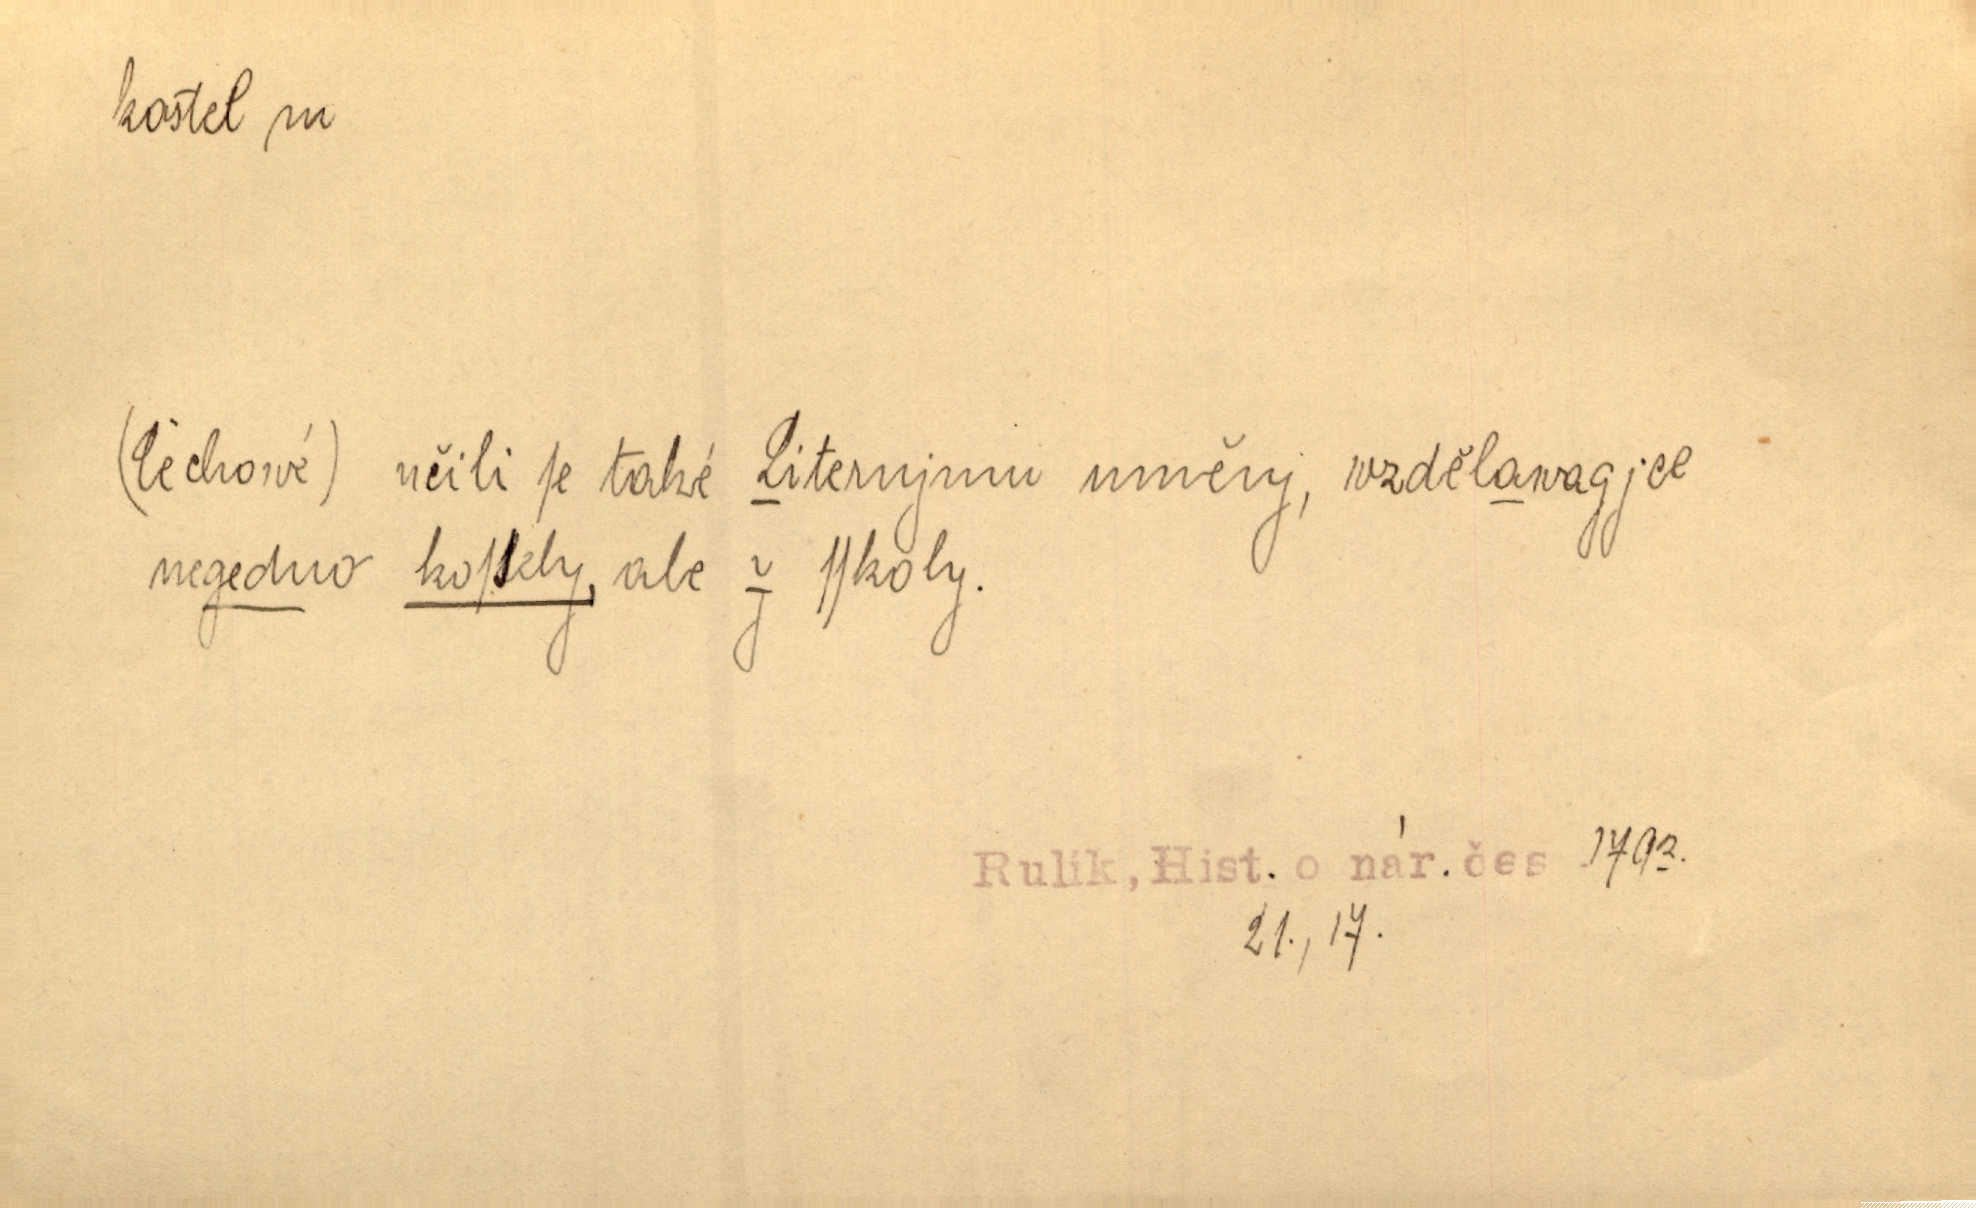 kostel m
(Čechowé) učili ſe také Liternjmu uměnj, wzdělawagjce
negedno koſtely, ale ǧ ſſkoly.
Rulík, Hist. o nár. čes 1792.
21., 17.